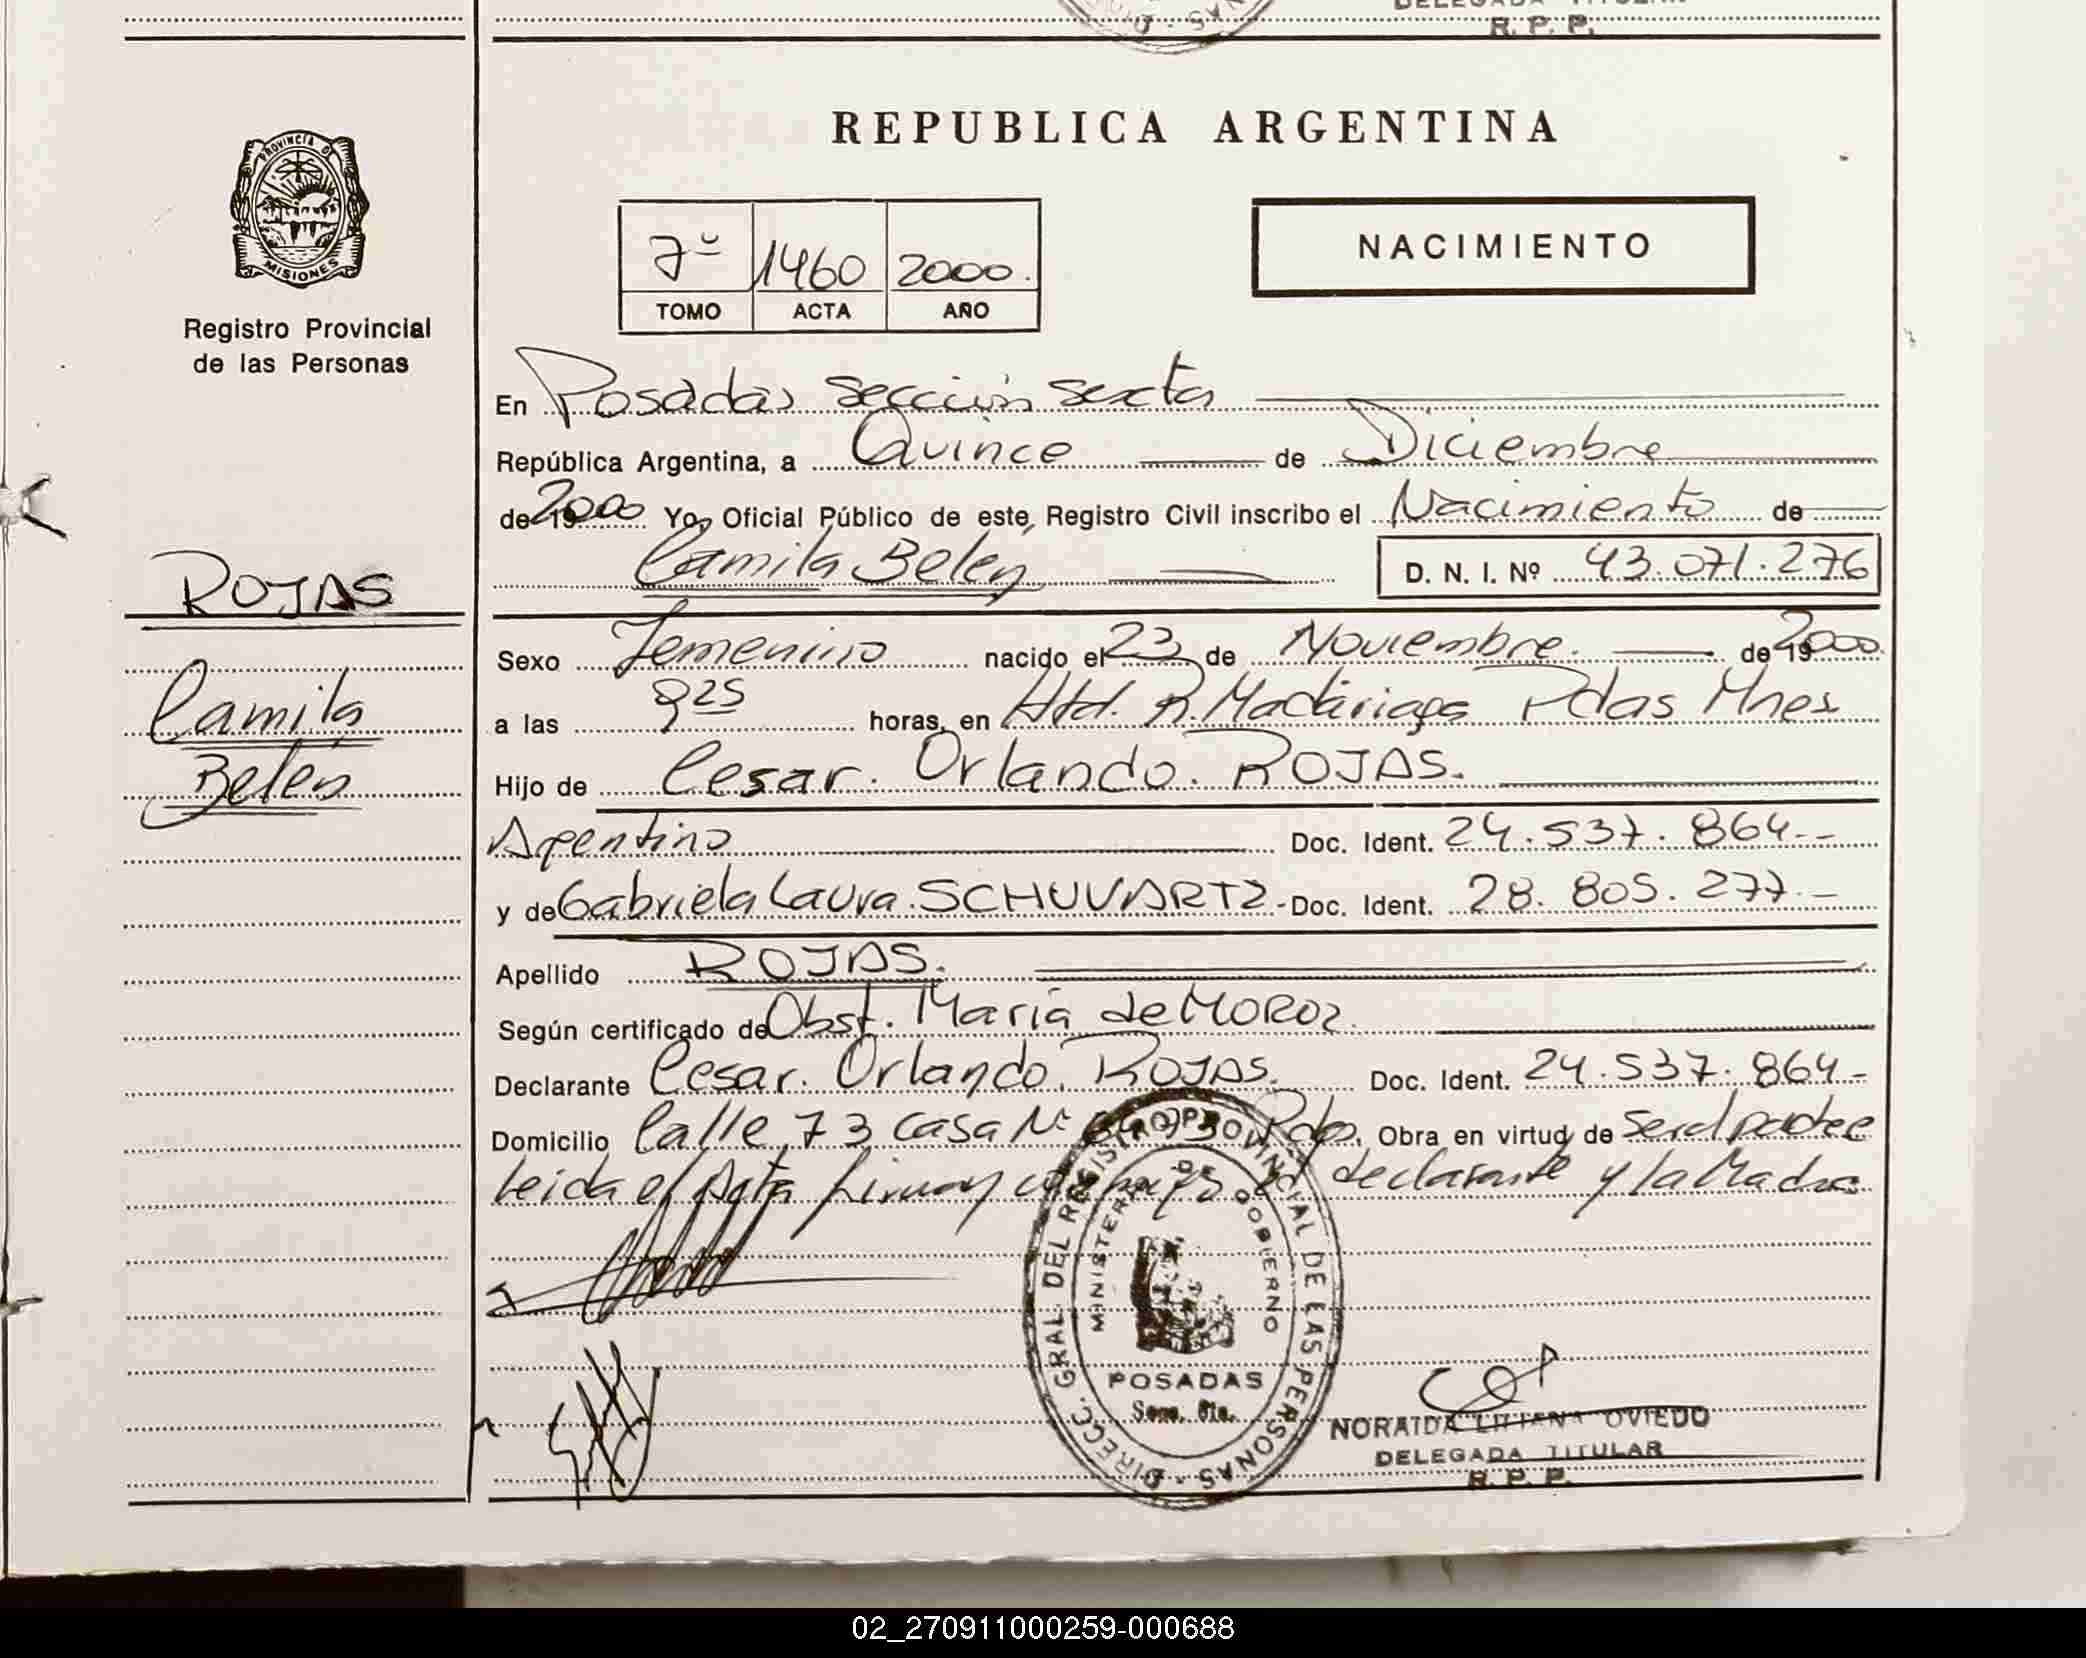 R. P. P.
PROVINCIA DE
MISIONES
Registro Provincial
de las Personas
ROJAS
Camila
Belén
REPUBLICA ARGENTINA
7º 1460 2000.
TOMO ACTA AÑO
NACIMIENTO
En Posadas sección sexta
República Argentina, a Quince de Diciembre
de 19 2000 Yo, Oficial Público de este Registro Civil inscribo el Nacimiento de
Camila Belén D. N. I. Nº 43.071.276
Sexo Femenino nacido el 23 de Noviembre. de 19 2000.
a las 9 25 horas, en Htal. R. Madariaga Pdas Mnes
Hijo de Cesar. Orlando. ROJAS.
Argentino Doc. Ident. 24.537.864--
y de Gabriela Laura. SCHUVARTZ - Doc. Ident. 28.805.277.-
Apellido ROJAS.
Según certificado de Obst. María de MOROZ.
Declarante Cesar. Orlando. ROJAS. Doc. Ident. 24.537.864-
Domicilio Calle 73 casa Nº Pdas. Obra en virtud de ser el padre
leida el Acta firman declarante y la Madre
DIRECC. GRAL. DEL REGISTRO PROVINCIAL DE LAS PERSONAS
MINISTERIO DE GOBIERNO
POSADAS
Secc. 6ta.
NORAIDA LILIANA OVIEDO
DELEGADA TITULAR
R. P. P.
02_270911000259-000688